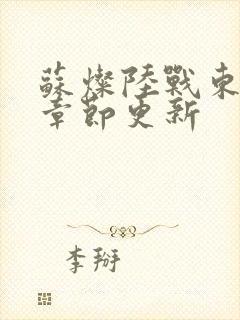 蘇燦陸戰東
章節更新
李搿